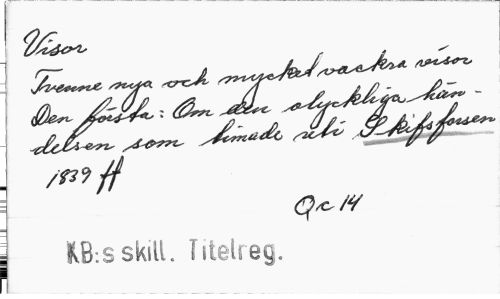 Visor
Tvenne nya och mycket vackra visor
Den första: Om den olyckliga hän-
delsen som timade uti Skifsforsen
1839 H
Qc 14
KB:s skill. Titelreg.